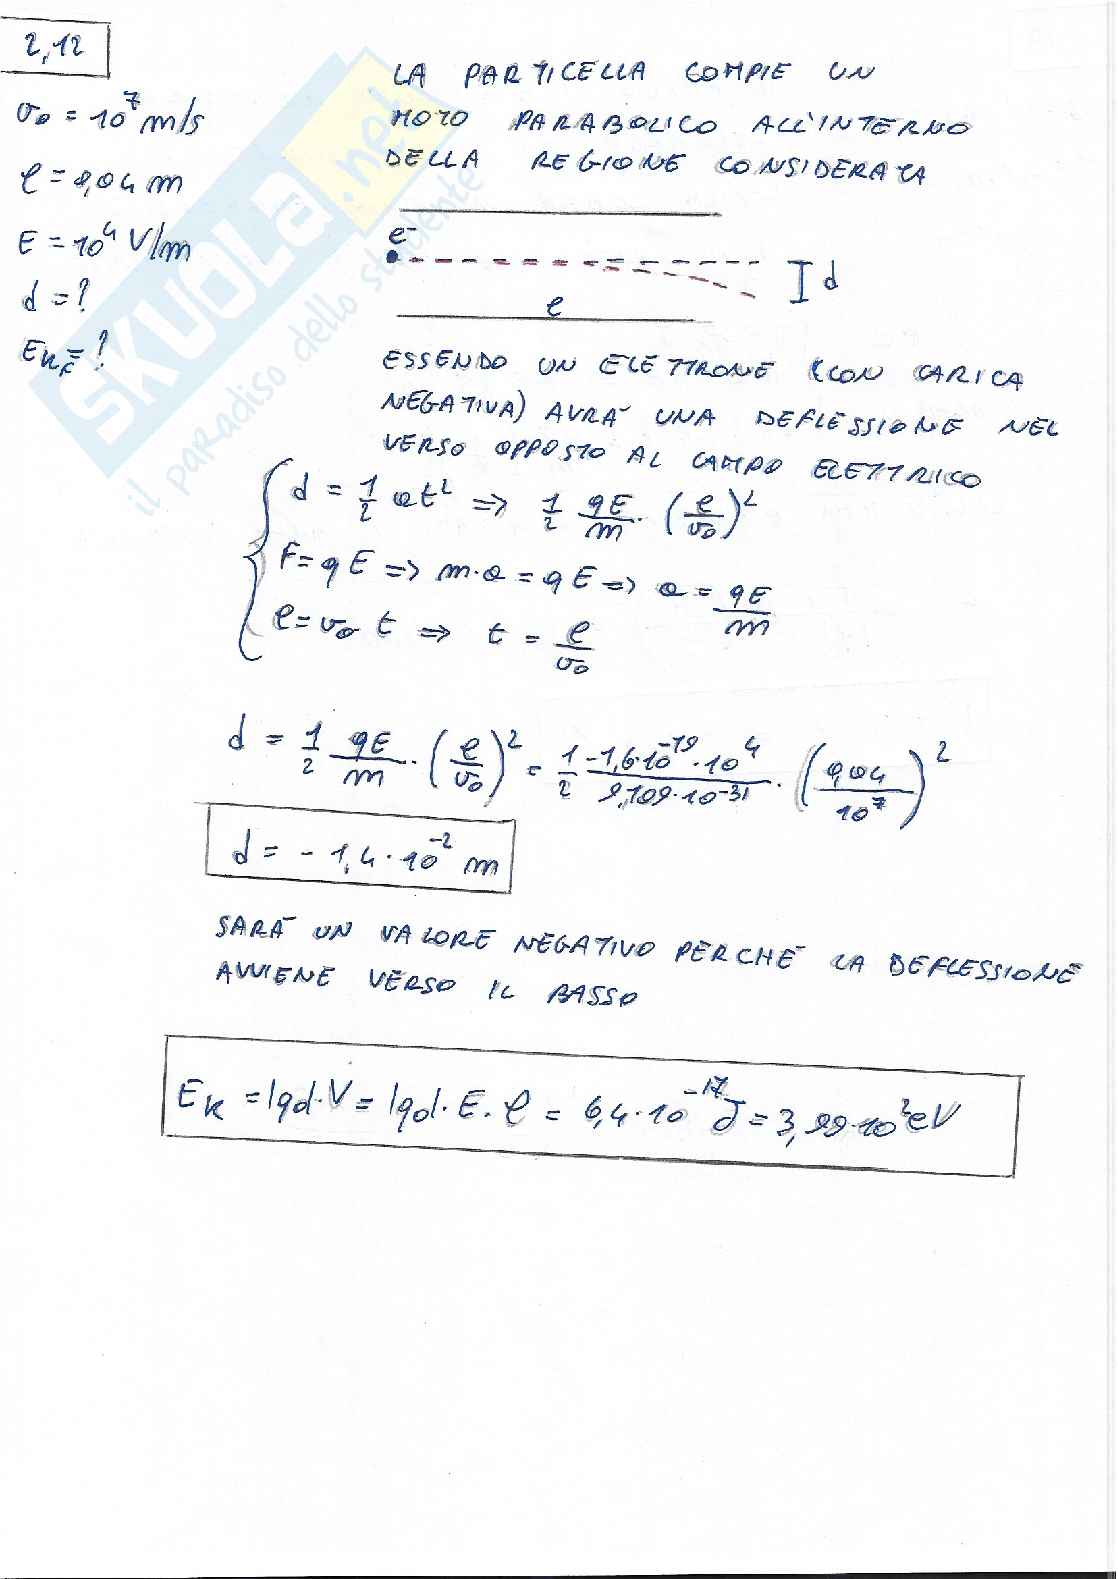 2,12
v₀ = 10⁷ m/s
l = 0,04 m
E = 10⁴ V/m
d = ?
E_Kf = ?
LA PARTICELLA COMPIE UN
MOTO PARABOLICO ALL'INTERNO
DELLA REGIONE CONSIDERATA
e⁻
d
l
ESSENDO UN ELETTRONE (CON CARICA
NEGATIVA) AVRÀ UNA DEFLESSIONE NEL
VERSO OPPOSTO AL CAMPO ELETTRICO
d = 1/2 at² => 1/2 qE/m · (l/v₀)²
F = qE => m·a = qE => a = qE/m
l = v₀ t => t = l/v₀
d = 1/2 qE/m · (l/v₀)² = 1/2 -1,6·10⁻¹⁹·10⁴/9,109·10⁻³¹ · (0,04/10⁷)²
d = - 1,4·10⁻² m
SARÀ UN VALORE NEGATIVO PERCHÉ LA DEFLESSIONE
AVVIENE VERSO IL BASSO
E_K = |q|·V = |q|·E·l = 6,4·10⁻¹⁷ J = 3,99·10² eV
SKUOLA.net
il paradiso dello studente